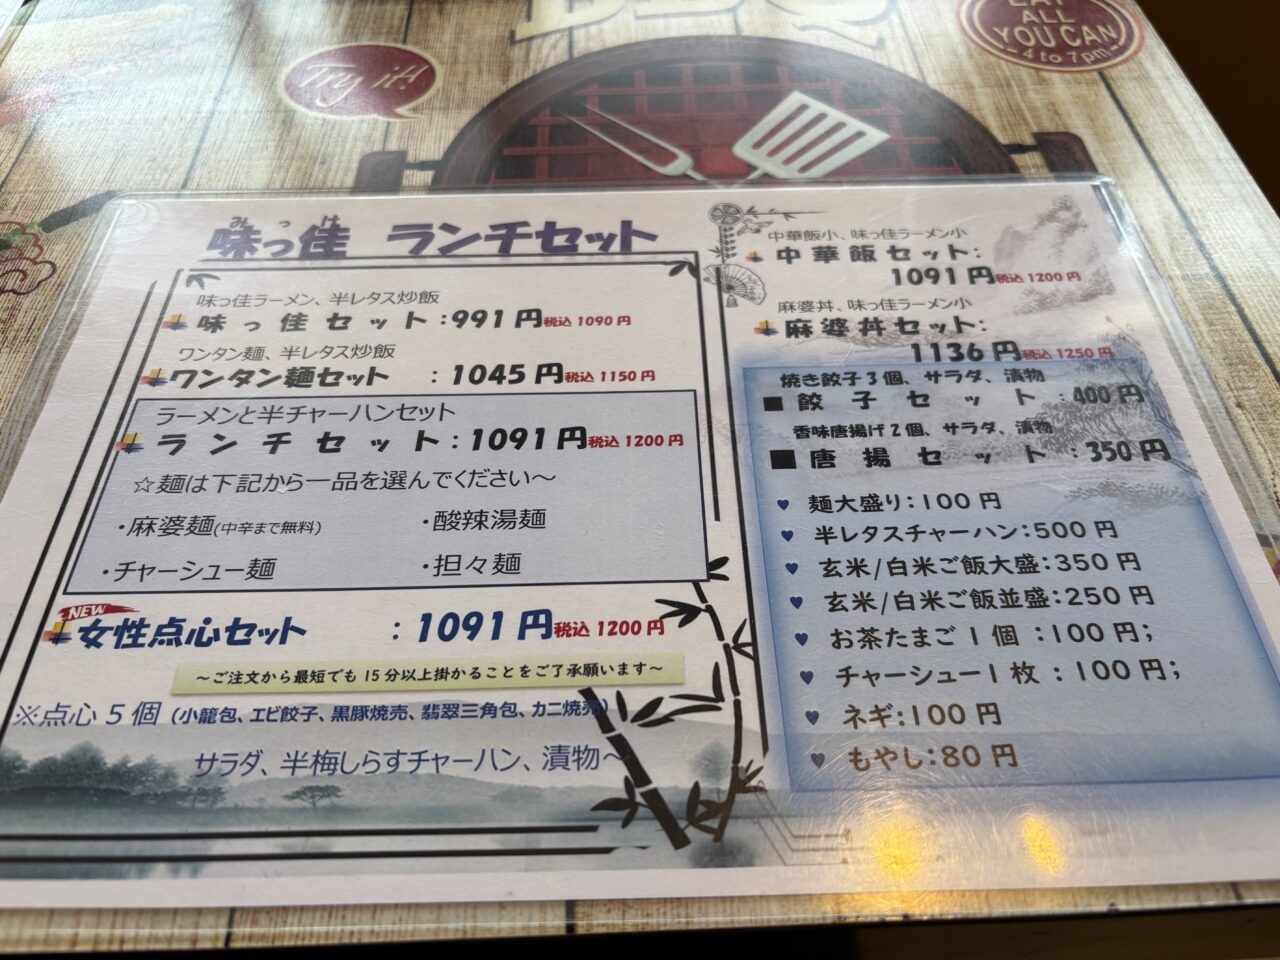 BBQ
EAT
ALL
YOU CAN
4 to 7pm
Try it!
みっは
味っ佳 ランチセット
味っ佳ラーメン、半レタス炒飯
味っ佳セット:991円税込1090円
ワンタン麺、半レタス炒飯
ワンタン麺セット :1045円税込1150円
ラーメンと半チャーハンセット
ランチセット:1091円税込1200円
☆麺は下記から一品を選んでください～
・麻婆麺(中辛まで無料) ・酸辣湯麺
・チャーシュー麺 ・担々麺
NEW
女性点心セット :1091円税込1200円
～ご注文から最短でも15分以上掛かることをご了承願います～
※点心5個(小籠包、エビ餃子、黒豚焼売、翡翠三角包、カニ焼売)
サラダ、半梅しらすチャーハン、漬物～
中華飯小、味っ佳ラーメン小
中華飯セット:
1091円税込1200円
麻婆丼、味っ佳ラーメン小
麻婆丼セット:
1136円税込1250円
焼き餃子3個、サラダ、漬物
■餃子セット:400円
香味唐揚げ2個、サラダ、漬物
■唐揚セット:350円
♥麺大盛り:100円
♥半レタスチャーハン:500円
♥玄米/白米ご飯大盛:350円
♥玄米/白米ご飯並盛:250円
♥お茶たまご1個:100円;
♥チャーシュー1枚:100円;
♥ネギ:100円
♥もやし:80円